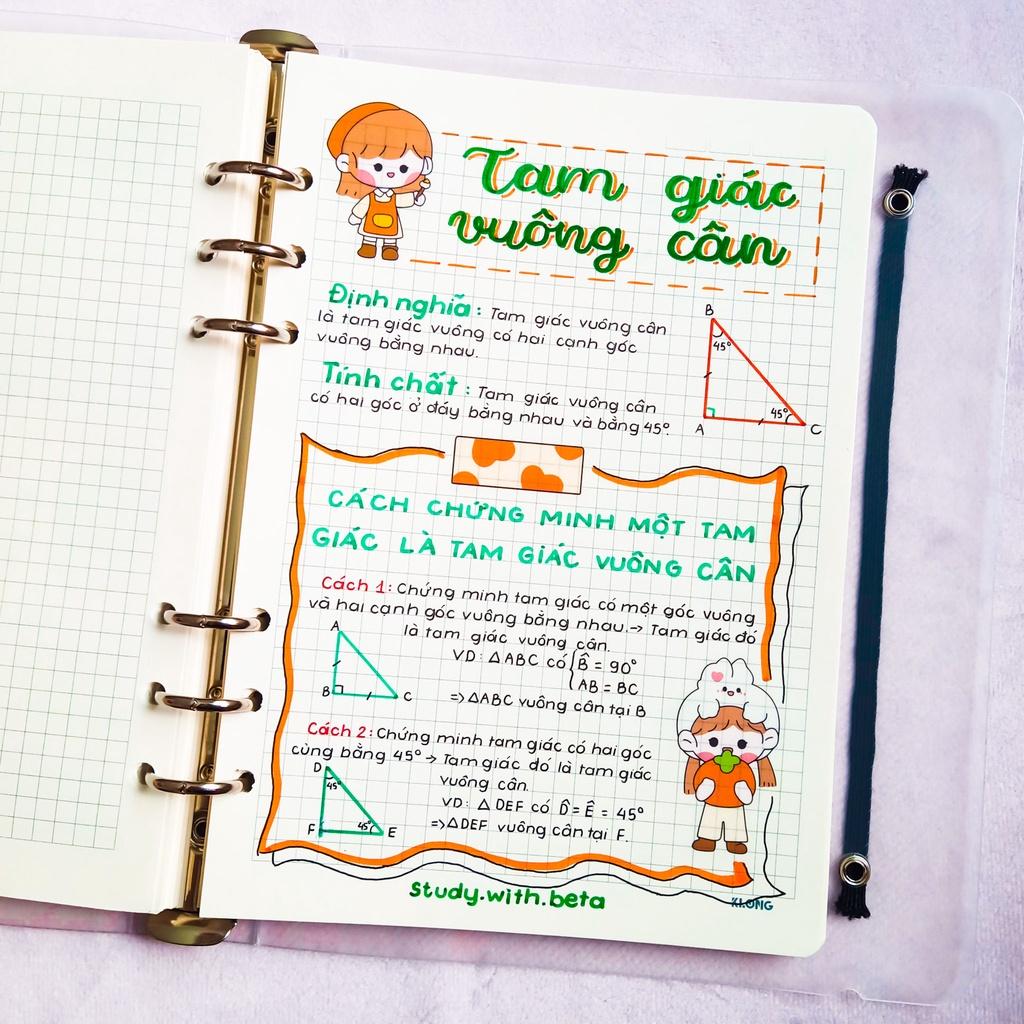 Tam giác
vuông cân
Định nghĩa: Tam giác vuông cân
là tam giác vuông có hai cạnh góc
vuông bằng nhau.
B
45°
45°
A
C
Tính chất: Tam giác vuông cân
có hai góc ở đáy bằng nhau và bằng 45°.
CÁCH CHỨNG MINH MỘT TAM
GIÁC LÀ TAM GIÁC VUÔNG CÂN
Cách 1: Chứng minh tam giác có một góc vuông
và hai cạnh góc vuông bằng nhau.→ Tam giác đó
là tam giác vuông cân.
A
B
C
VD: △ABC có { B̂ = 90°
AB = BC
=> △ABC vuông cân tại B
Cách 2: Chứng minh tam giác có hai góc
cùng bằng 45° → Tam giác đó là tam giác
vuông cân.
D
45°
45°
F
E
VD: △DEF có D̂ = Ê = 45°
=> △DEF vuông cân tại F.
study.with.beta
KLONG